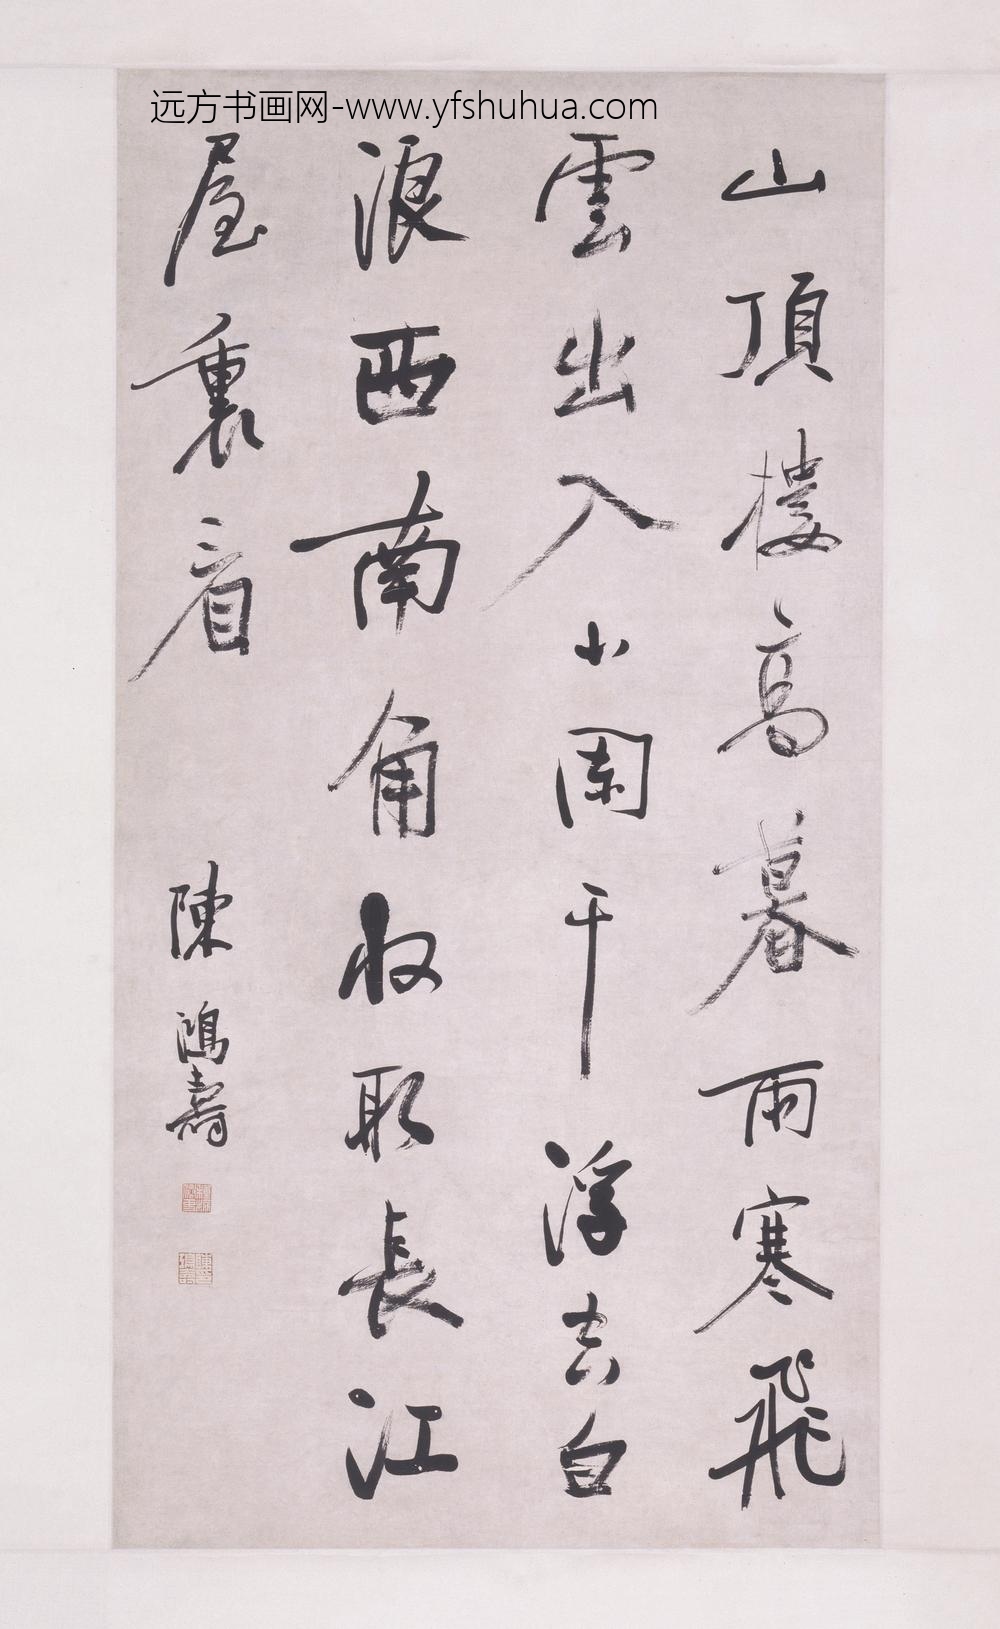 远方书画网-www.yfshuhua.com
山頂樓高暮雨寒飛
雲出入小闌干浮去白
浪西南角收取長江
屋裏看
陳鴻壽